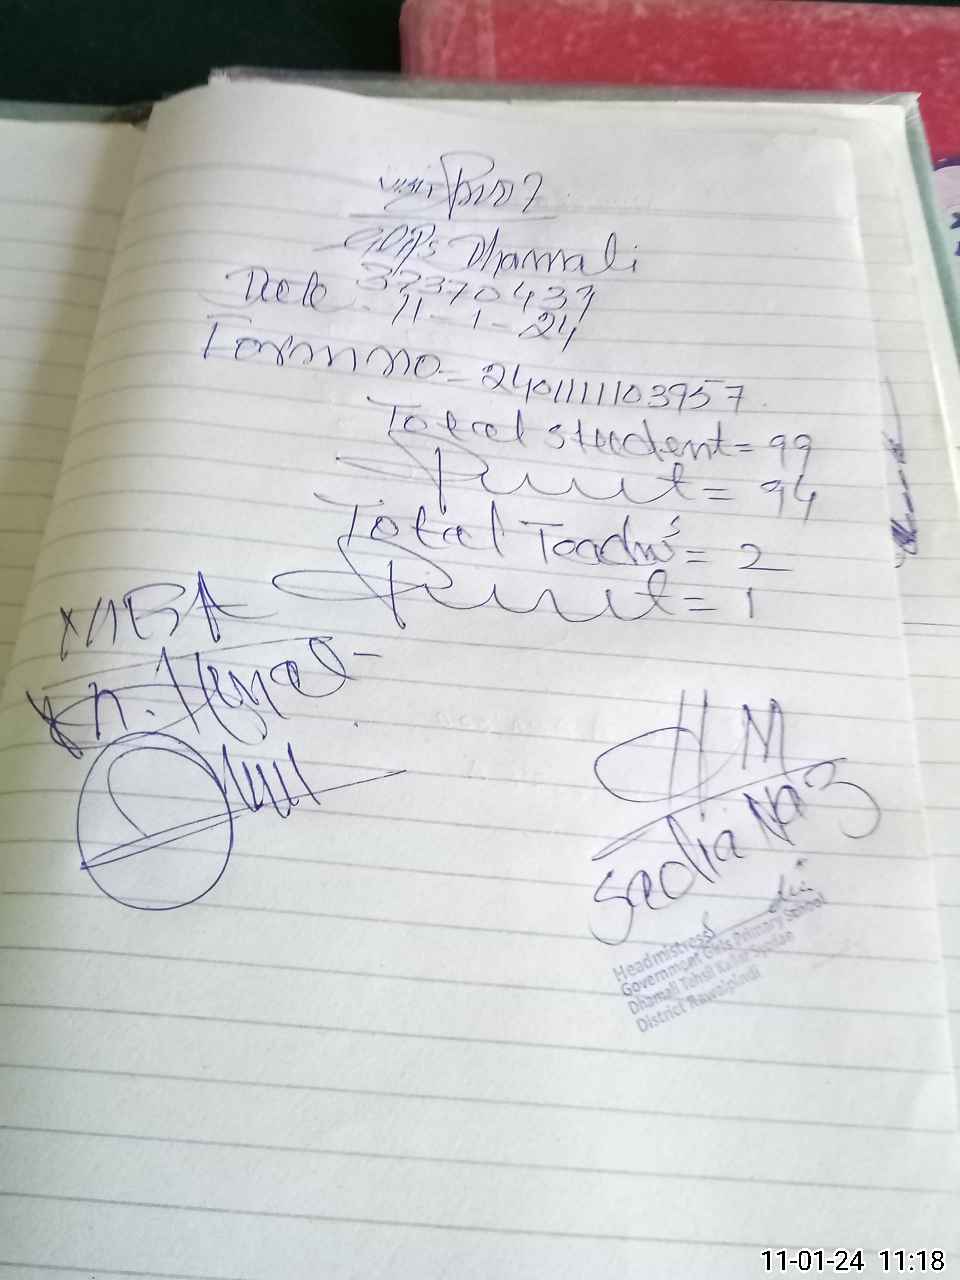 visit
GGPS Dhamali
37370437
Date 11-1-24
Form no = 2401111103957
Total student = 99
Present = 94
Total Teachers = 2
Present = 1
HM
Sadia Naz
Headmistress
Government Girls Primary School
Dhamali Tehsil Kallar Syedan
District Rawalpindi
11-01-24 11:18